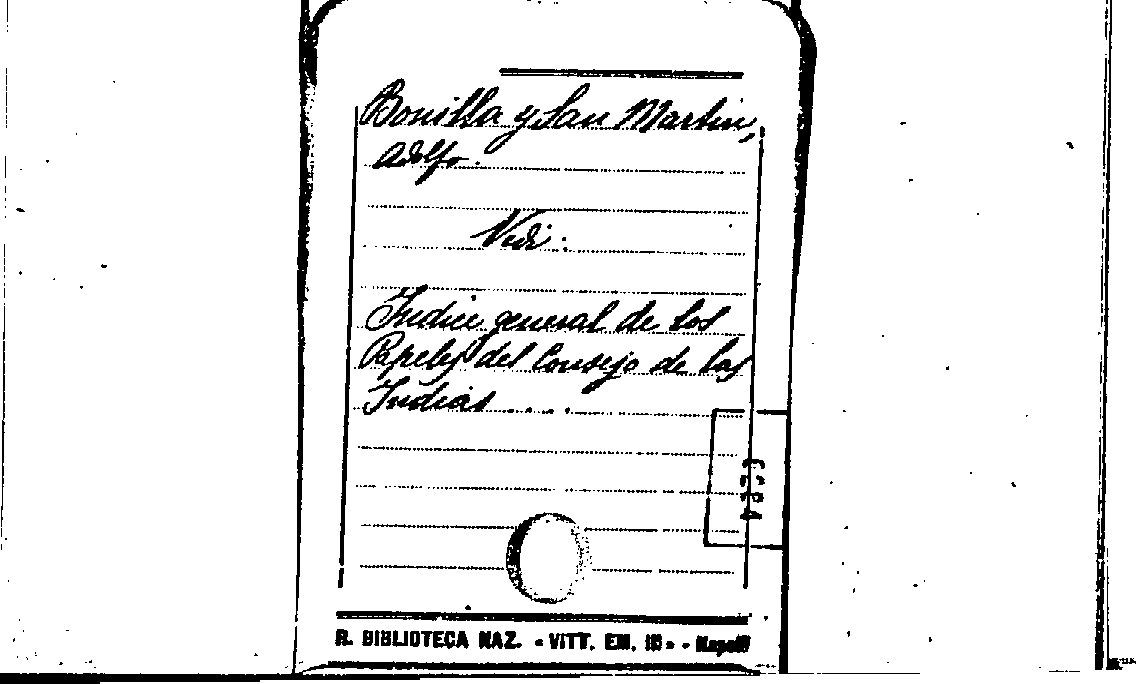 Bonilla y San Martin,
Adolfo.
Vedi:
Indice general de los
Papeles del Consejo de las
Indias....
R. BIBLIOTECA NAZ. « VITT. EM. III » - Napoli